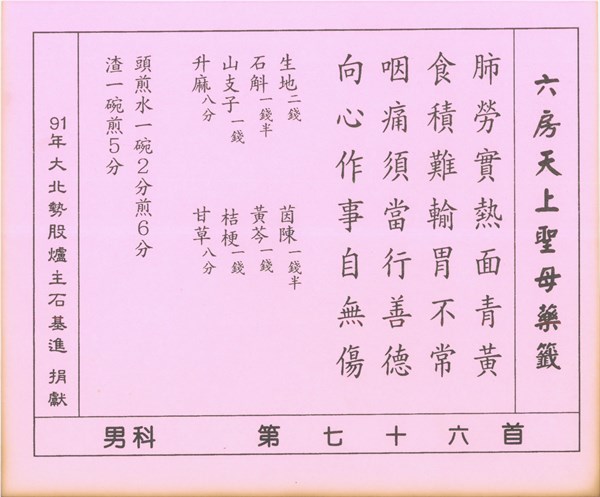 六房天上聖母藥籤
肺勞實熱面青黃
食積難輸胃不常
咽痛須當行善德
向心作事自無傷
生地二錢 茵陳一錢半
石斛一錢半 黃芩一錢
山支子一錢 桔梗一錢
升麻八分 甘草八分
頭煎水一碗2分煎6分
渣一碗煎5分
91年大北勢股爐主石基進 捐獻
首六十七第 男科